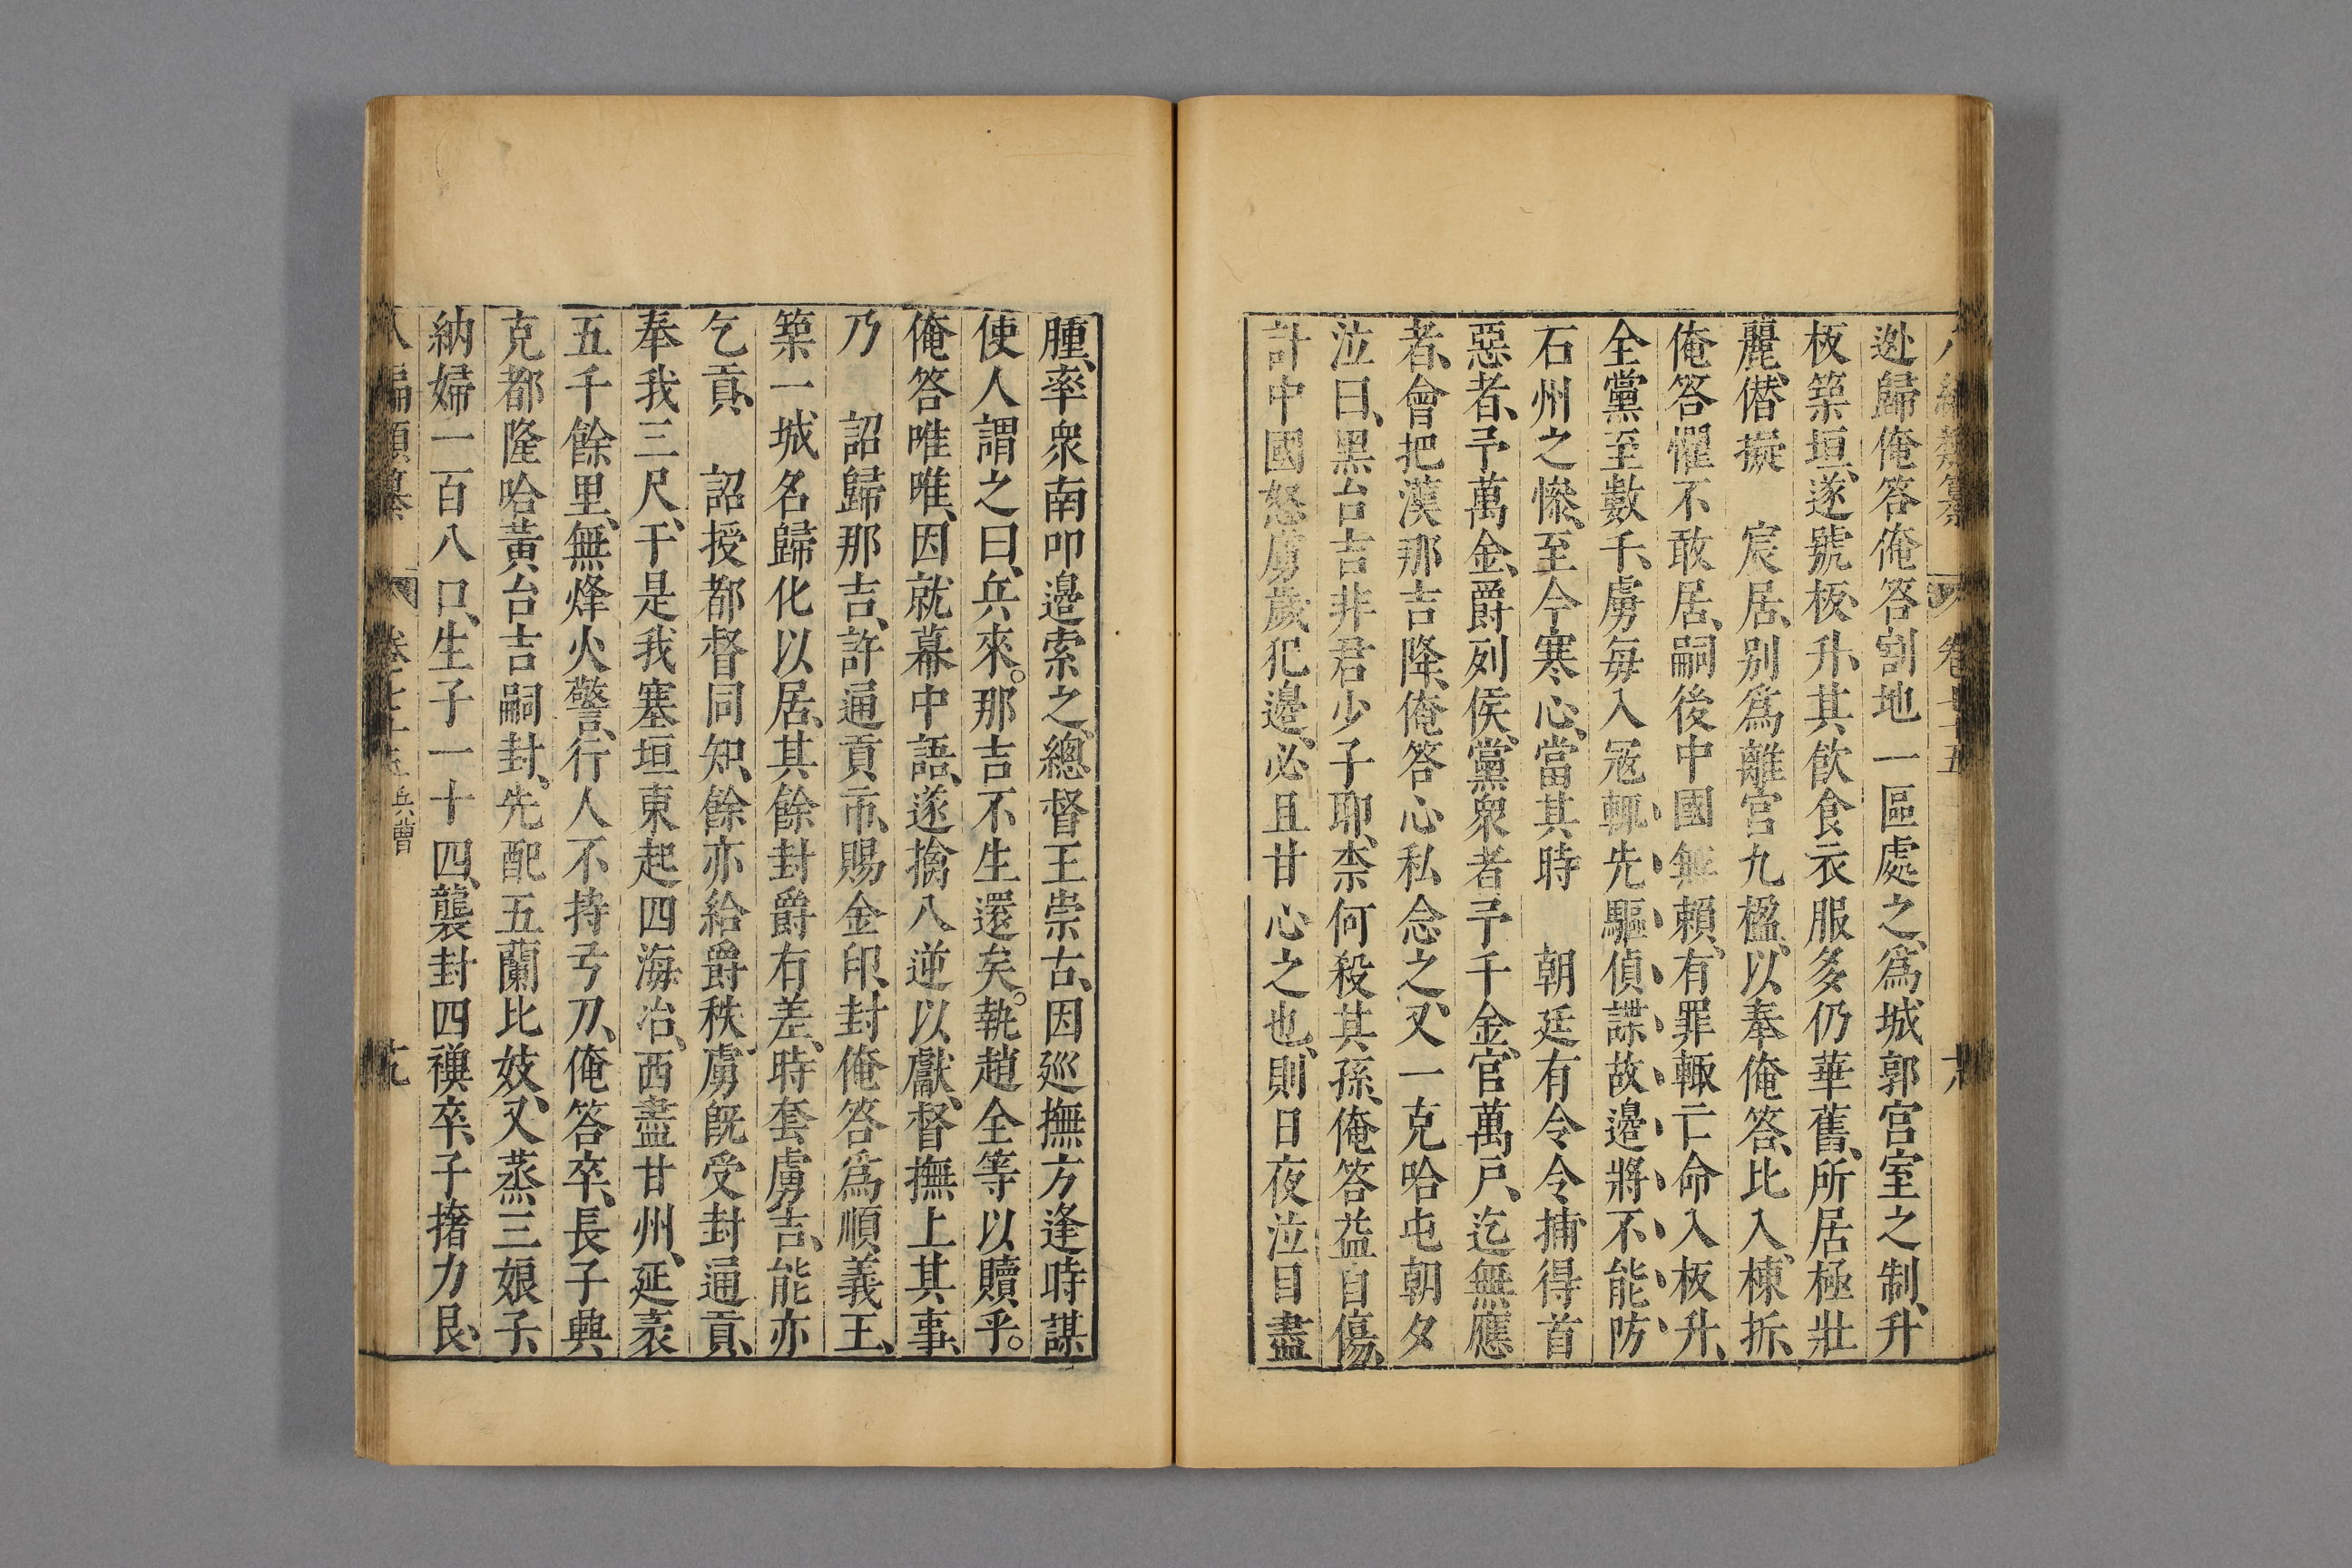 逊歸俺答俺答割地一區處之、爲城郭宮室之制、升
板築垣、遂號板升、其飲食衣服多仍華舊、所居極壯
麗、僭擬　宸居、別爲離宮九楹、以奉俺答、比入、棟折、
俺答懼不敢居、嗣後中國無賴、有罪輙亡命入板升、
全黨至數千、虜每入冦輙先驅偵諜故邊將不能防
石州之慘、至今寒心、當其時　朝廷有令令捕得首
惡者、予萬金、爵列侯、黨衆者予千金、官萬戶、迄無應
者、會把漢那吉降、俺答心私念之、又一克哈屯朝夕
泣曰、黑台吉非君少子耶、柰何殺其孫、俺答益自傷、
計中國怒虜歲犯邊、必且甘心之也、則日夜泣目盡
腫、率衆南叩邊索之、總督王崇古、因巡撫方逢時謀
使人謂之曰、兵來。那吉不生還矣。執趙全等以贖乎。
俺答唯唯、因就幕中語、遂擒八逆以獻、督撫上其事、
乃　詔歸那吉、許通貢市、賜金印、封俺答爲順義王、
築一城名歸化以居、其餘封爵有差、時套虜吉、能亦
乞貢、　詔授都督同知、餘亦給爵秩、虜旣受封通貢、
奉我三尺、于是我塞垣東起四海冶、西盡甘州、延袤
五千餘里、無烽火警、行人不持弓刀、俺答卒、長子興
克都隆哈黃台吉嗣封、先配五蘭比妓、又蒸三娘子、
納婦一百八口、生子一十四、襲封四禩卒、子撦力艮、
八編類纂　卷七十五　兵曹